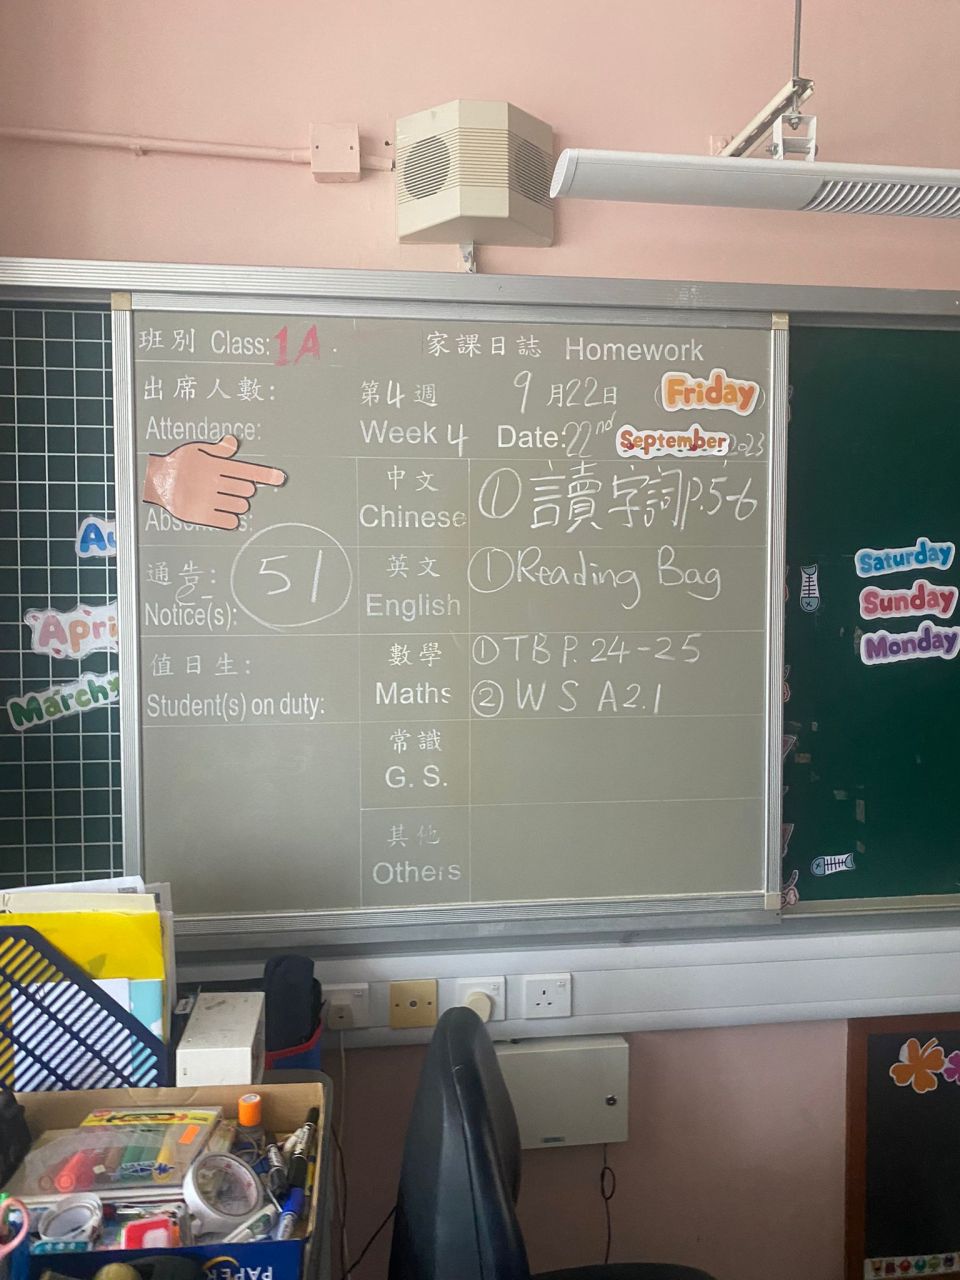 班別 Class: 1A .
家課日誌 Homework
出席人數:
Attendance:
第4週 9月22日 (Friday)
Week 4 Date: 22nd September 2023
通告: 51
Notice(s):
值日生:
Student(s) on duty:
中文
Chinese
① 讀字詞 P.5-6
英文
English
① Reading Bag
數學
Maths
① TB P. 24-25
② WS A2.1
常識
G. S.
其他
Others
April
March
Saturday
Sunday
Monday
PAPER